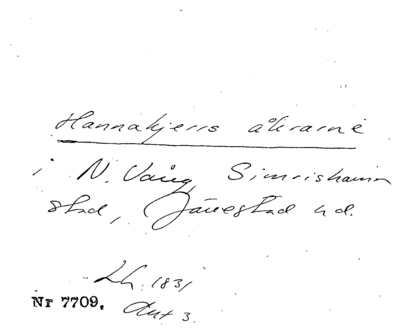 Hannakjerrs åkrarne
i N. Vång, Simrishamn
stad, Järrestad hd.
Lh. 1831
Nr 7709. Akt 3.